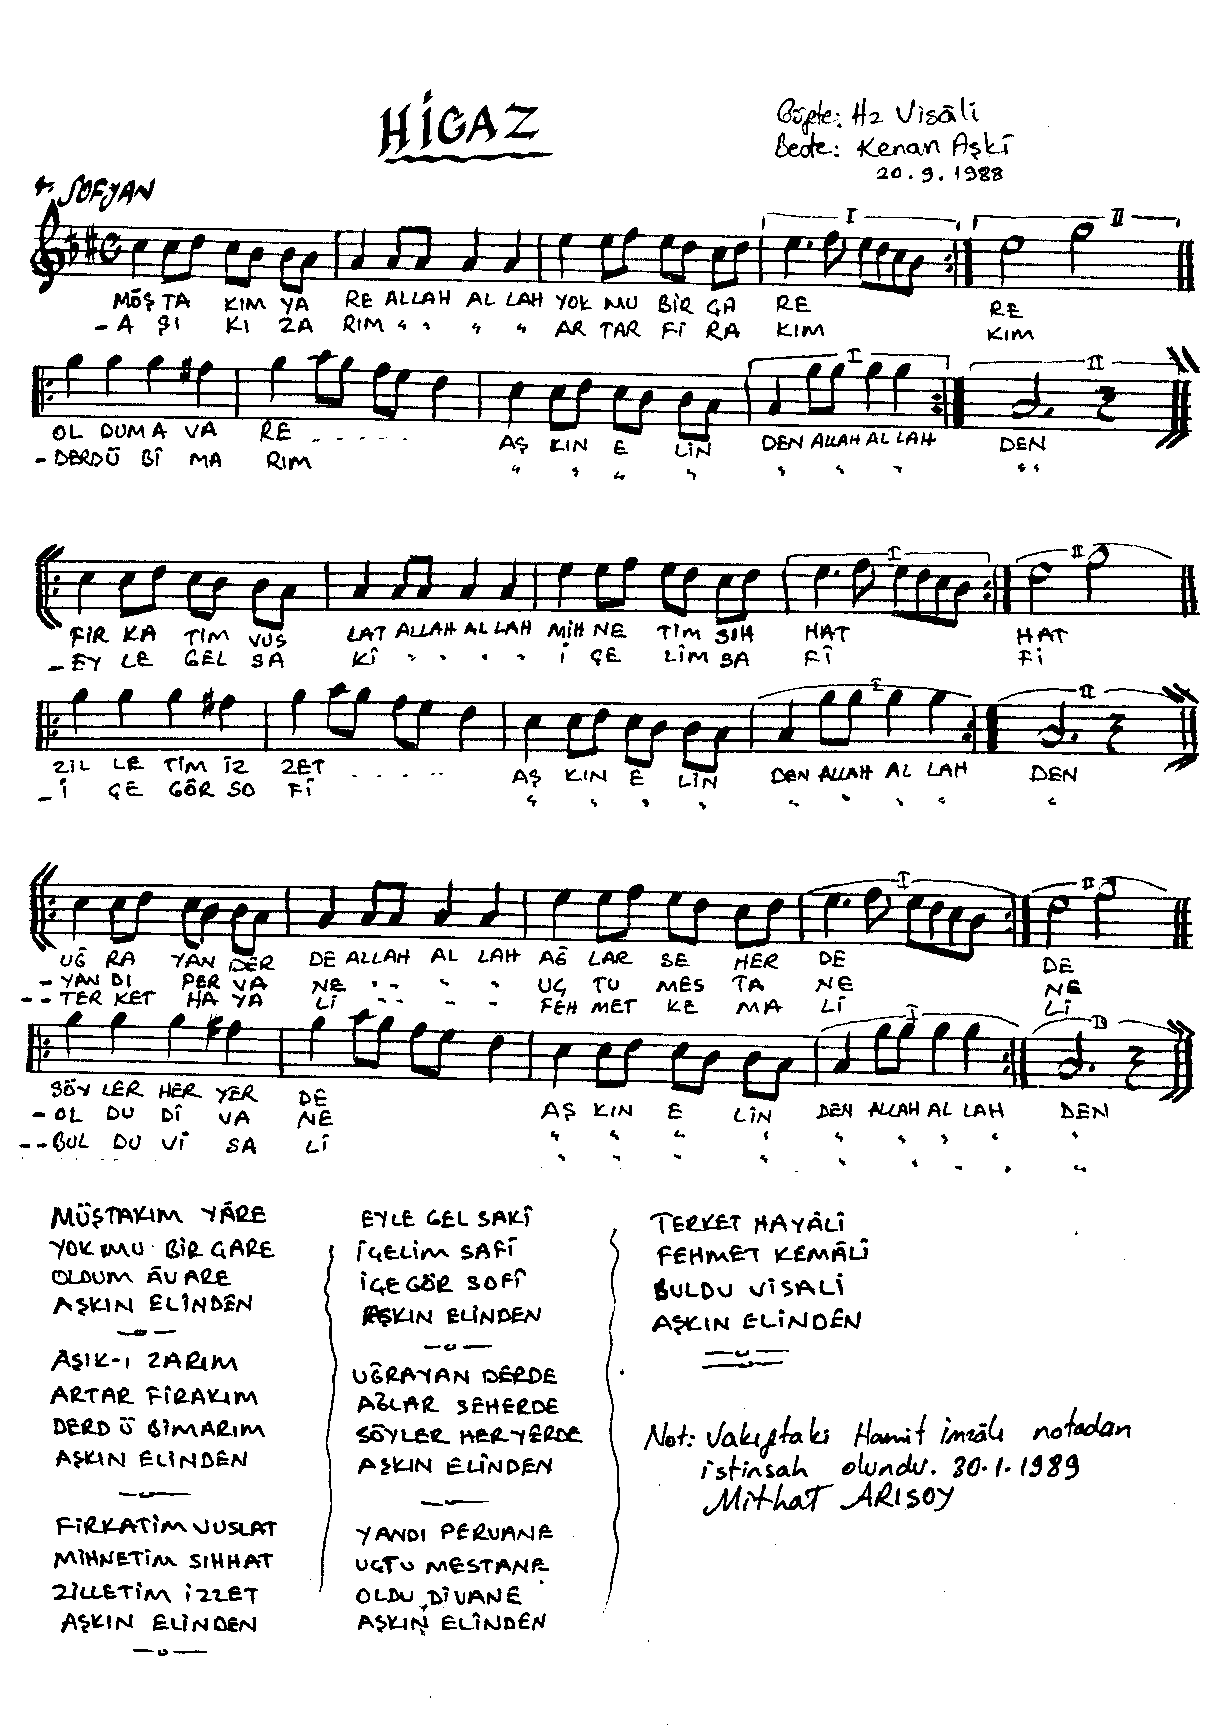 HİCAZ
Güfte: Hz Visâli
Beste: Kenan Aşkî
20.9.1988
SOFYAN
I II
MÜŞ TA KIM YA RE ALLAH AL LAH YOK MU BİR ÇA RE RE
- A ŞI KI ZA RIM " " " " AR TAR FÎ RA KIM KIM
I II
OL DUM A VA RE . . . . . . AŞ KIN E LİN DEN ALLAH AL LAH DEN
- DERDÜ BÎ MA RIM " " " " " " " " "
I II
FİR KA TİM VUS LAT ALLAH AL LAH MİH NE TİM SIH HAT HAT
- EY LE GEL SA KÎ " " " " İ ÇE LİM SA FÎ FÎ
I II
ZİL LE TİM İZ ZET . . . . . AŞ KIN E LİN DEN ALLAH AL LAH DEN
- İ ÇE GÖR SO FÎ " " " " " " " " "
I II
UĞ RA YAN DER DE ALLAH AL LAH AĞ LAR SE HER DE DE
- YAN DI PER VA NE " " " " UÇ TU MES TA NE NE
-- TER KET HA YA LÎ " " " " FEH MET KE MA LÎ LÎ
I II
SÖY LER HER YER DE AŞ KIN E LİN DEN ALLAH AL LAH DEN
- OL DU DÎ VA NE " " " " " " " " "
-- BUL DU VÎ SA LÎ " " " " " " " " "
MÜŞTAKIM YÂRE
YOK MU BİR ÇARE
OLDUM ÂVARE
AŞKIN ELİNDEN
AŞIK-I ZARIM
ARTAR FİRAKIM
DERD Ü BİMARIM
AŞKIN ELİNDEN
FİRKATİM VUSLAT
MİHNETİM SIHHAT
ZİLLETİM İZZET
AŞKIN ELİNDEN
EYLE GEL SAKÎ
İÇELİM SAFÎ
İÇE GÖR SOFÎ
AŞKIN ELİNDEN
UĞRAYAN DERDE
AĞLAR SEHERDE
SÖYLER HER YERDE
AŞKIN ELİNDEN
YANDI PERVANE
UÇTU MESTANE
OLDU DİVANE
AŞKIN ELİNDEN
TERKET HAYÂLİ
FEHMET KEMÂLİ
BULDU VİSALİ
AŞKIN ELİNDEN
Not: Vakıftaki Hamit imzâlı notadan
istinsah olundu. 30.1.1989
Mithat ARISOY